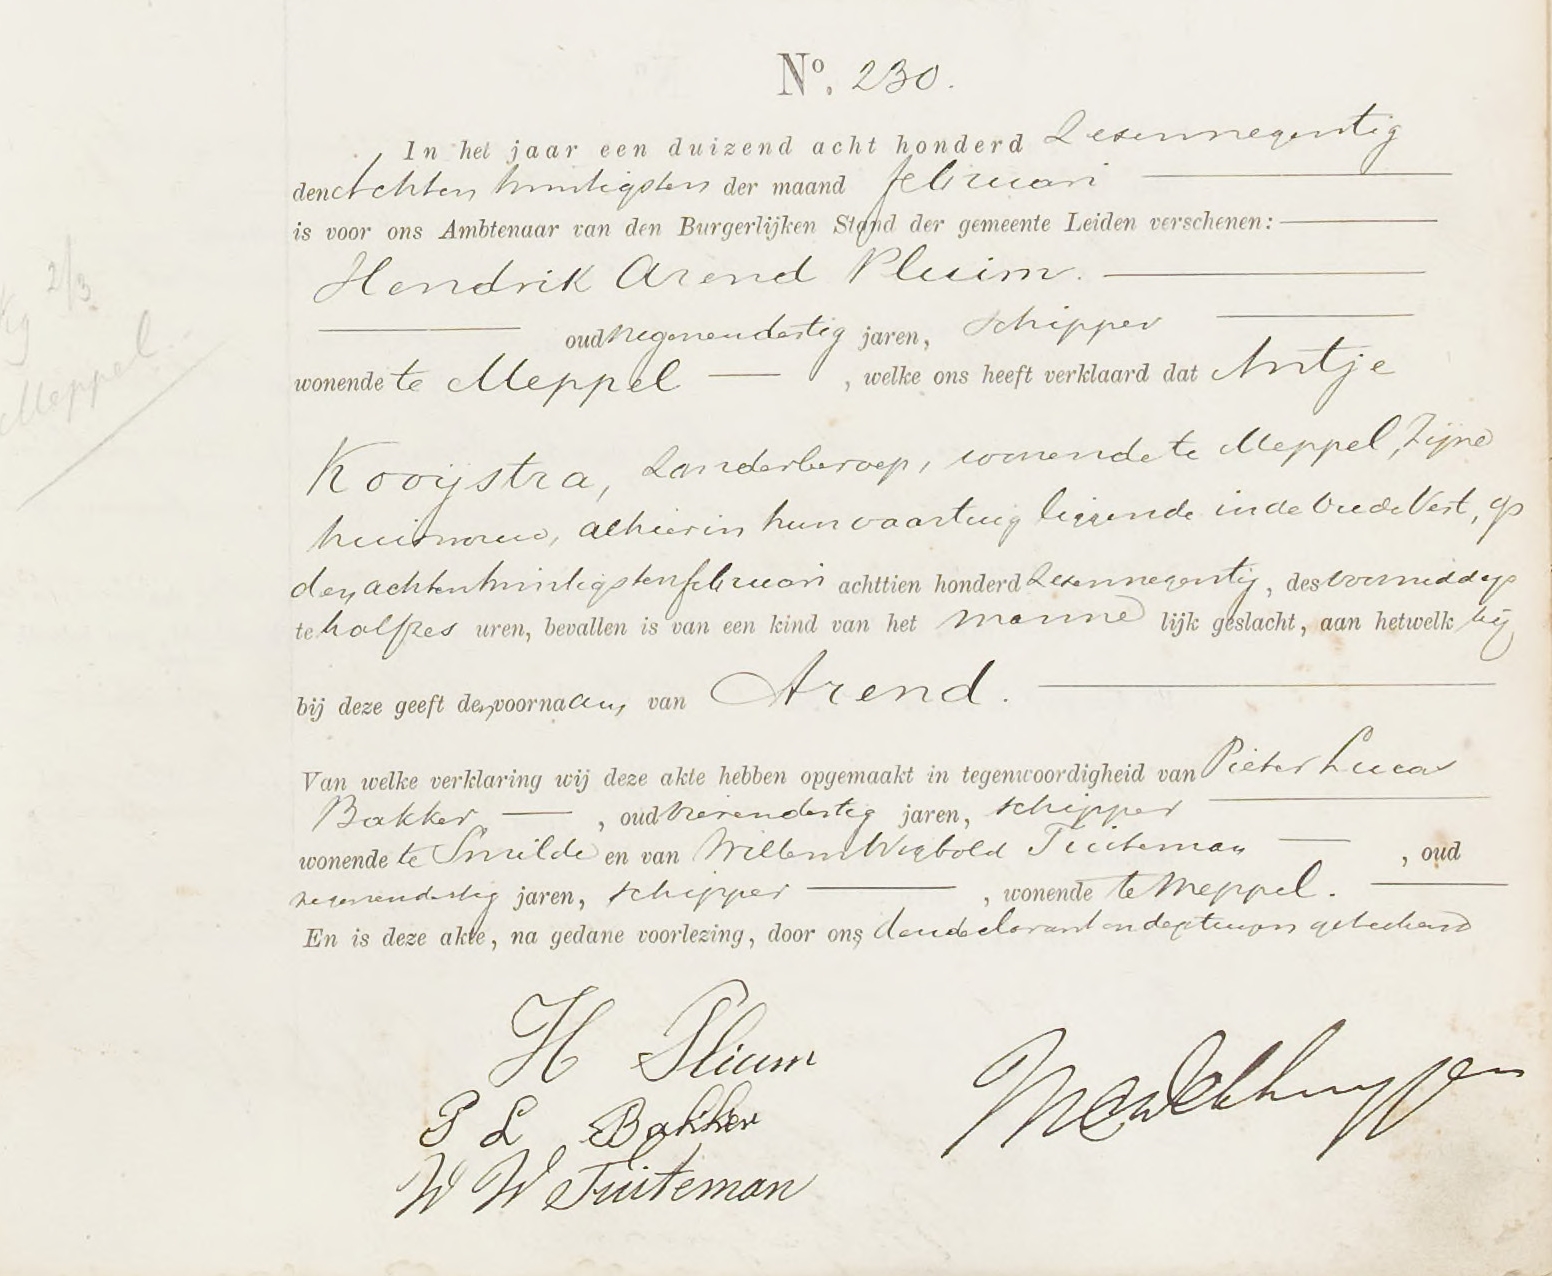 No. 230.
In het jaar een duizend acht honderd Zesennegentig
den achten twintigsten der maand februari
is voor ons Ambtenaar van den Burgerlijken Stand der gemeente Leiden verschenen:
Hendrik Arend Pluim.
2/3
oud negenendertig jaren, schipper
wonende te Meppel, welke ons heeft verklaard dat Antje
Meppel
Kooijstra, zonder beroep, wonende te Meppel, Zijne
huisvrouw, alhier in hun vaartuig liggende in de Oude Vest, op
den achtentwintigsten februari achttien honderd Zesennegentig, des voormiddags
te half zes uren, bevallen is van een kind van het manne lijk geslacht, aan hetwelk hij
bij deze geeft den voornaam van Arend.
Van welke verklaring wij deze akte hebben opgemaakt in tegenwoordigheid van Pieter Lucas
Bakker, oud vierendertig jaren, schipper
wonende te Smilde en van Willem Wiebold Tuiteman, oud
negenendertig jaren, schipper, wonende te Meppel.
En is deze akte, na gedane voorlezing, door ons, den declarant en de getuigen geteekend
H Pluim
P L Bakker
W W Tuiteman